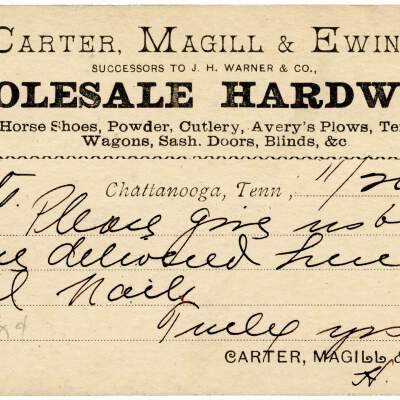 CARTER, MAGILL & EWIN
SUCCESSORS TO J. H. WARNER & CO.,
OLESALE HARDW
Horse Shoes, Powder, Cutlery, Avery's Plows, Te
Wagons, Sash. Doors, Blinds, &c
Chattanooga, Tenn, 11/20
Please give us b
delivered here
Nails
Truly yrs
CARTER, MAGILL &
H.